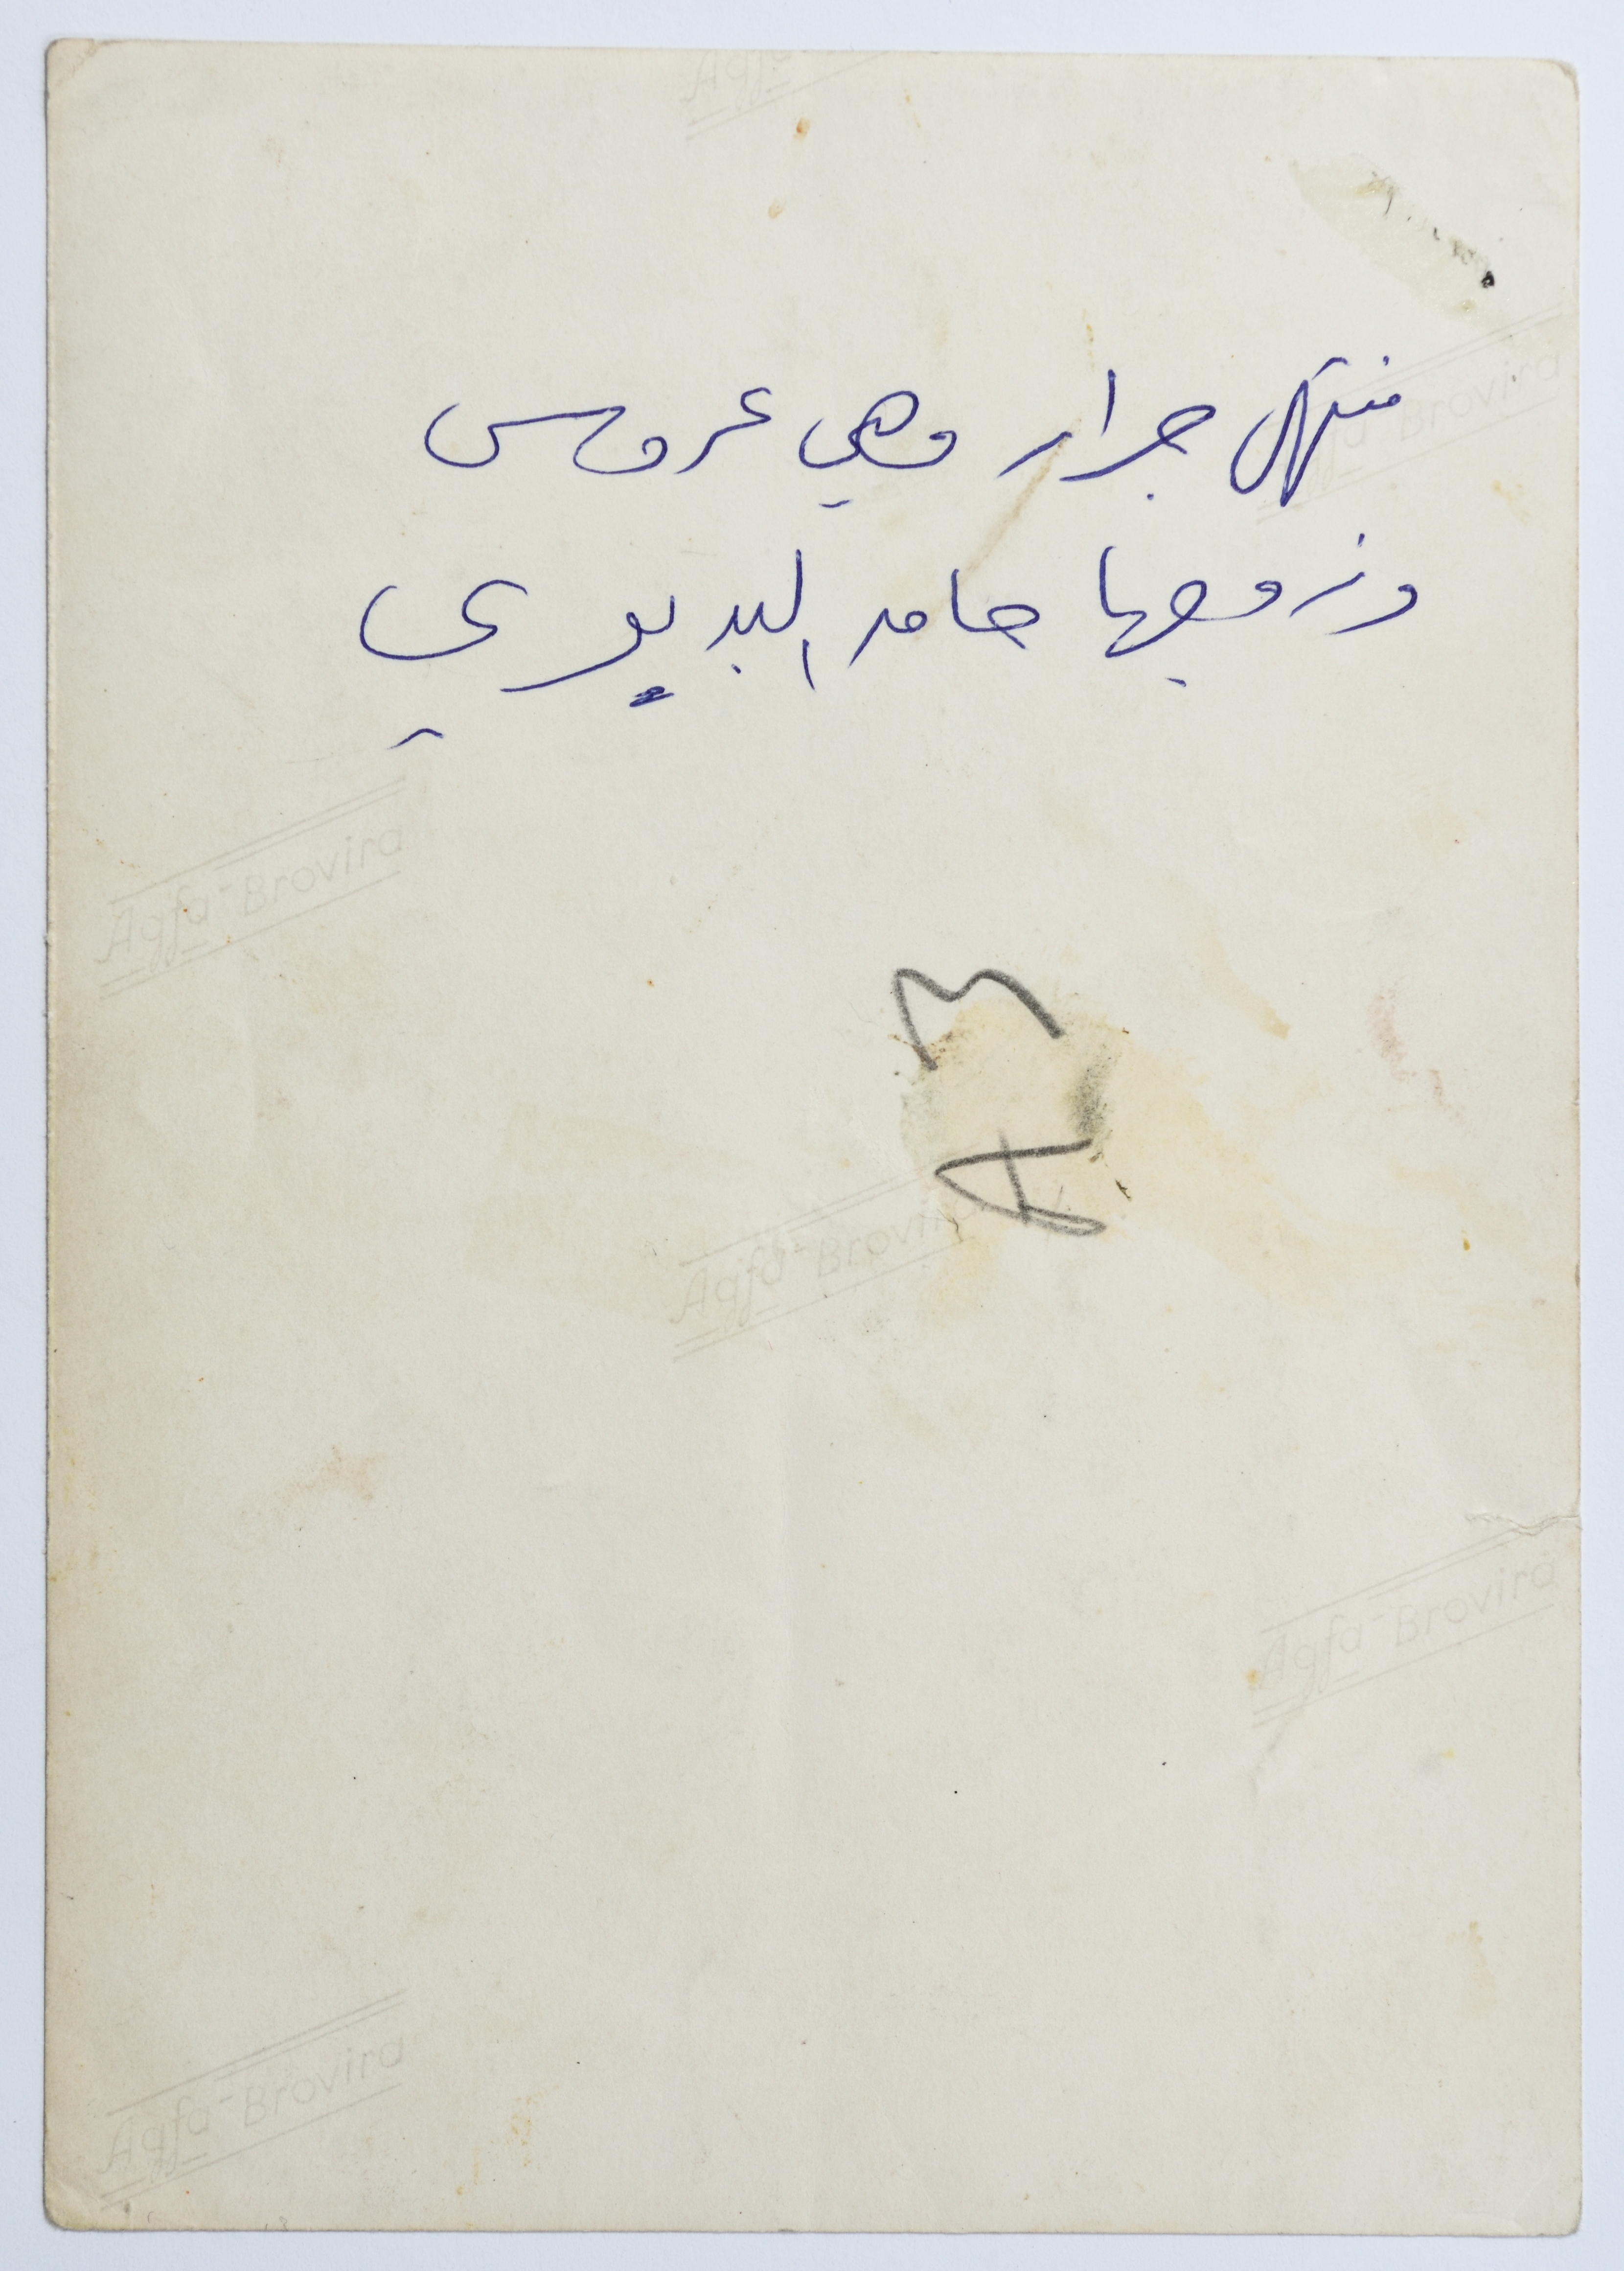 منتهى جرار وهي عروس
وزوجها حامد البديري
Agfa-Brovira
Agfa-Brovira
Agfa-Brovira
Agfa-Brovira
Agfa-Brovira